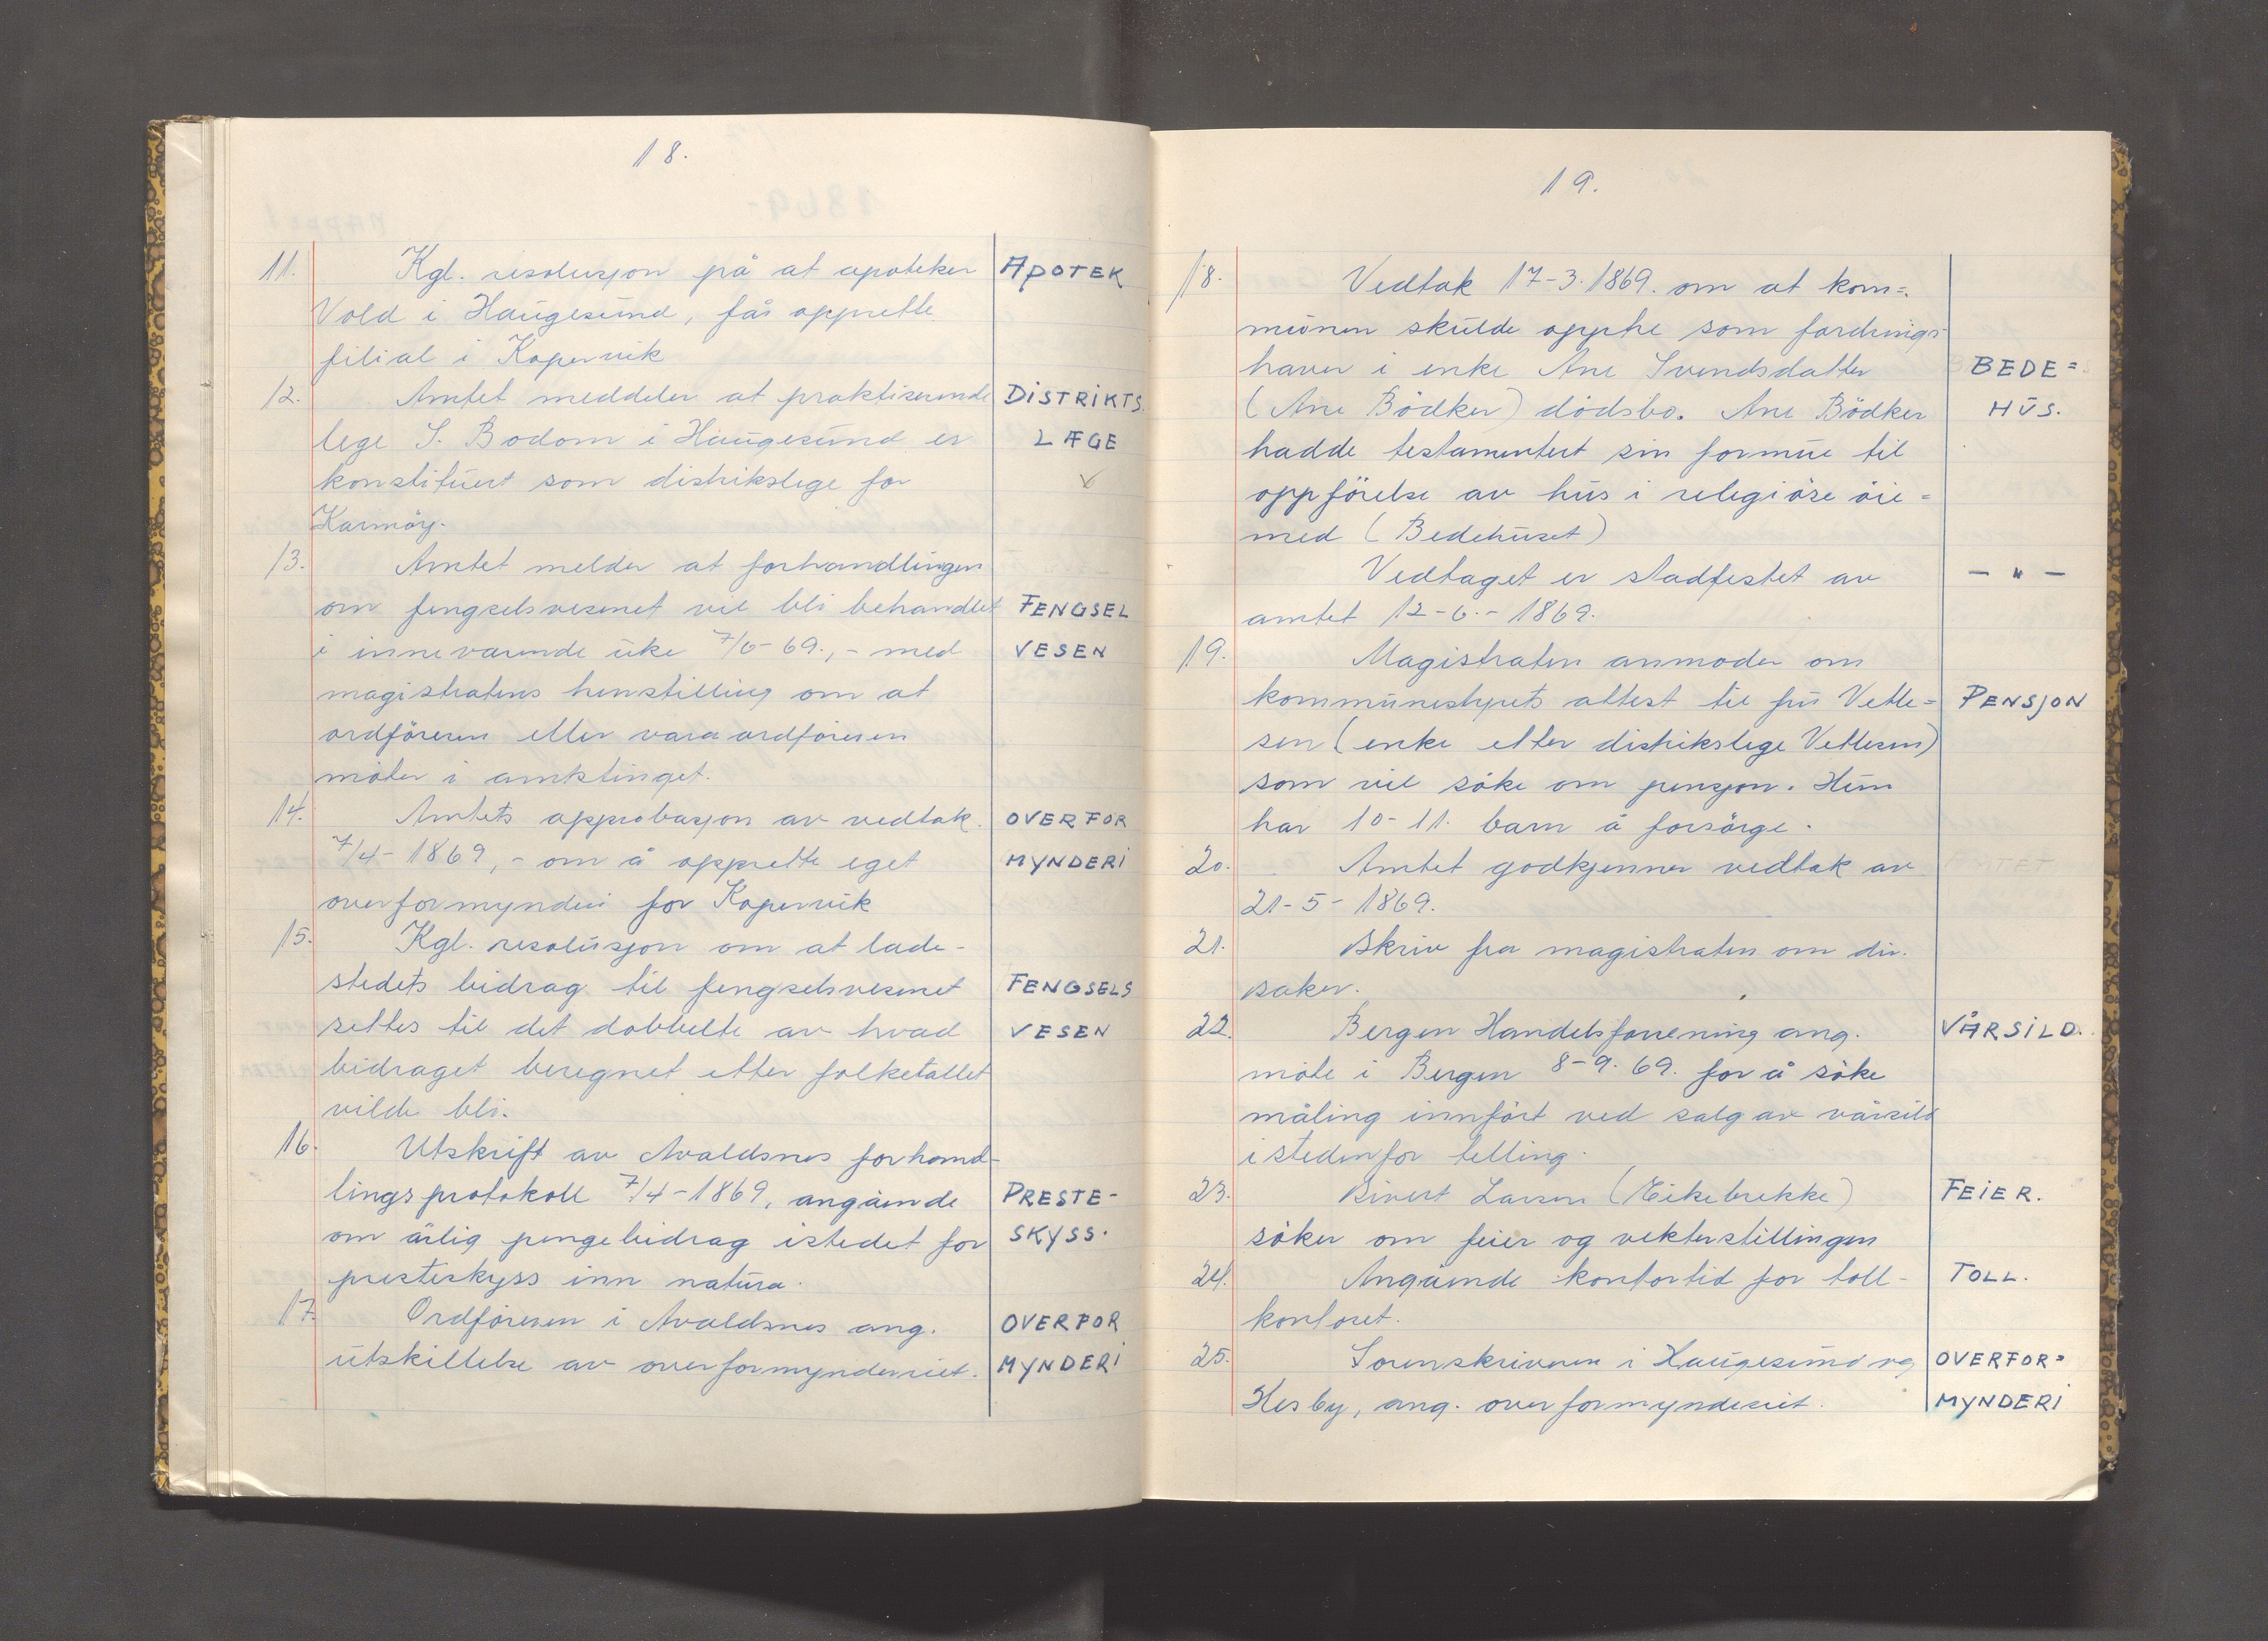 18.
11. Kgl. resolusjon på at apoteker APOTEK
Vold i Haugesund, får opprette
filial i Kopervik
12. Amtet meddeler at praktiserende DISTRIKTS.
lege S. Bodom i Haugesund er LÆGE
konstituert som distrikslege for
Karmöy.
13. Amtet melder at forhandlingen
om fengselsvesenet vil bli behandlet FENGSEL
i inneværende uke 7/6-69., - med VESEN
magistratens henstilling om at
ordföreren eller varaordföreren
möter i amtstinget.
14. Amtets approbasjon av vedtak. OVERFOR
7/4-1869, - om å opprette eget MYNDERI
overformynderi for Kopervik
15. Kgl. resolusjon om at lade-
stedets bidrag til fengselsvesenet FENGSELS
settes til det dobbelte av hvad VESEN
bidraget beregnet etter folketallet
vilde bli.
16. Utskrift av Avaldsnes forhand-
lingsprotokoll 7/4-1869, angående PRESTE-
om årlig pengebidrag istedet for SKYSS.
presteskyss inn natura.
17. Ordföreren i Avaldsnes ang. OVERFOR
utskillelse av overformynderiet. MYNDERI
19.
18. Vedtak 17-3.1869. om at kom=
munen skulde opphe som fordrings-
haver i enke Ane Svendsdatter BEDE=
(Ane Bödker) dödsbo. Ane Bödker HUS.
hadde testamentert sin formue til
oppförelse av hus i relegiöse öie=
med (Bedehuset)
Vedtaget er stadfestet av - " -
amtet 12-6.-1869.
19. Magistraten anmoder om
kommunestyrets attest til fru Vetle= PENSJON
sen (enke etter distrikslege Vetlesen)
som vil söke om pensjon. Hun
har 10-11. barn å forsörge.
20. Amtet godkjenner vedtak av
21-5-1869.
21. Skriv fra magistraten om div.
saker.
22. Bergen Handelsforrening ang. VÅRSILD.
möte i Bergen 8-9.69. for å söke
måling innfört ved salg av vårsild
istedenfor telling.
23. Sivert Larsen (Eikebrekke) FEIER.
söker om feier og vekterstillingen
24. Angående kontortid for toll- TOLL.
kontoret.
25. Sorenskriveren i Haugesund og OVERFOR=
Hesby, ang. overformynderiet. MYNDERI